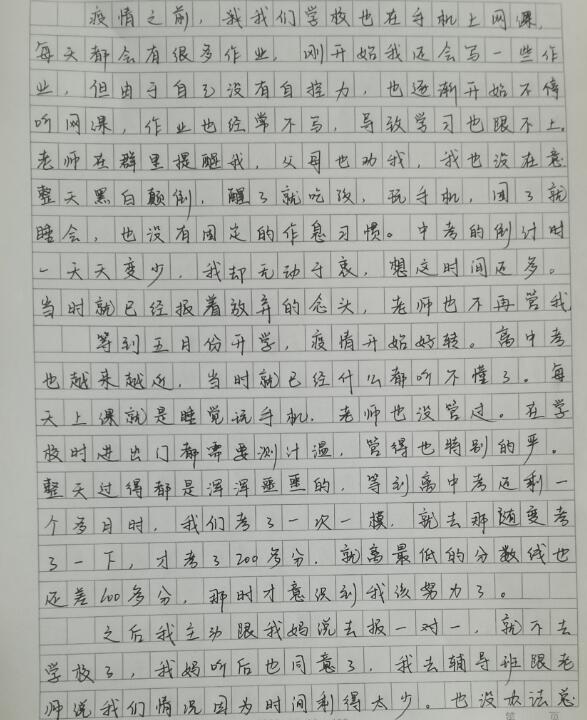 疫情之前，我我们学校也在手机上网课，
每天都会有很多作业，刚开始我还会写一些作
业，但由于自己没有自控力，也逐渐开始不停
听网课，作业也经常不写，导致学习也跟不上。
老师在群里提醒我，父母也劝我，我也没在意
整天黑白颠倒，醒了就吃饭，玩手机，困了就
睡会，也没有固定的作息习惯。中考的倒计时
一天天变少，我却无动于衷，想这时间还多。
当时就已经报着放弃的念头，老师也不再管我
等到五月份开学，疫情开始好转。离中考
也越来越近，当时就已经什么都听不懂了。每
天上课就是睡觉玩手机，老师也没管过。在学
校时进出门都需要测计温，管得也特别的严。
整天过得都是浑浑噩噩的，等到离中考还剩一
个多月时，我们考了一次一模，就去那随变考
了一下，才考了200多分，就离最低的分数线也
还差100多分，那时才意识到我该努力了。
之后我主动跟我妈说去报一对一，就不去
学校了，我妈听后也同意了，我去辅导班跟老
师说我们情况因为时间剩得太少。也没办法总
第 页